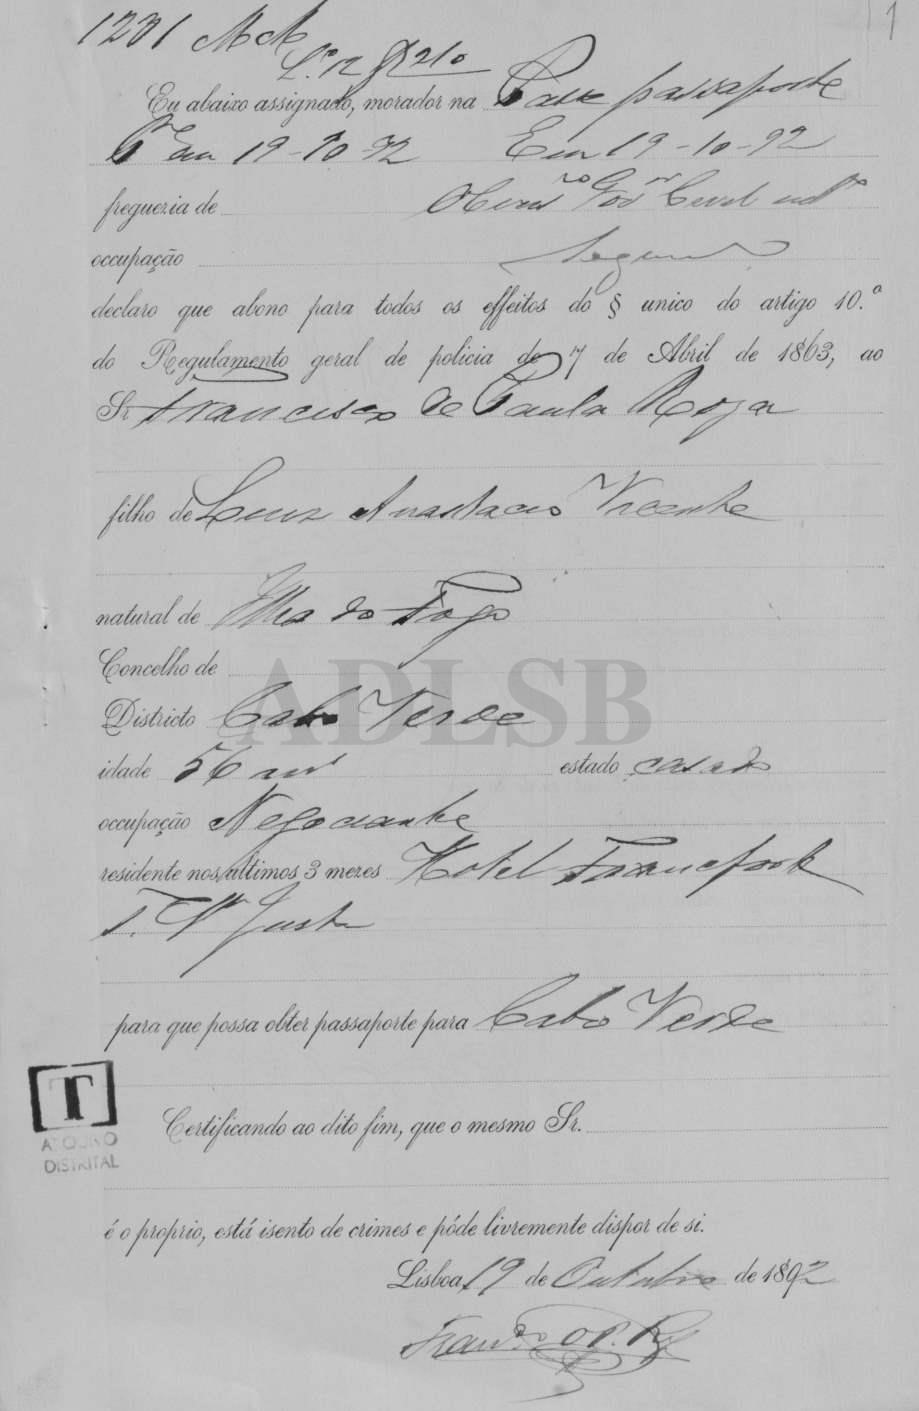 1
1231
Eu abaixo assignado, morador na Passe passaporte
Em 19-10-92 Em 19-10-92
freguezia de
occupação
declaro que abono para todos os effeitos do § unico do artigo 10.º
do Regulamento geral de policia de 7 de Abril de 1863, ao
Sr. Francisco de Paula Roza
filho de Luiz Anastacio Vicente
natural de Ilha do Fogo
Concelho de
Districto Cabo Verde
idade 56 estado casado
occupação Negociante
residente nos ultimos 3 mezes Hotel Francfort
Justa
para que possa obter passaporte para Cabo Verde
Certificando ao dito fim, que o mesmo Sr.
é o proprio, está isento de crimes e póde livremente dispor de si.
Lisboa, 19 de Outubro de 1892
ADLSB
T
ARQUIVO
DISTRITAL